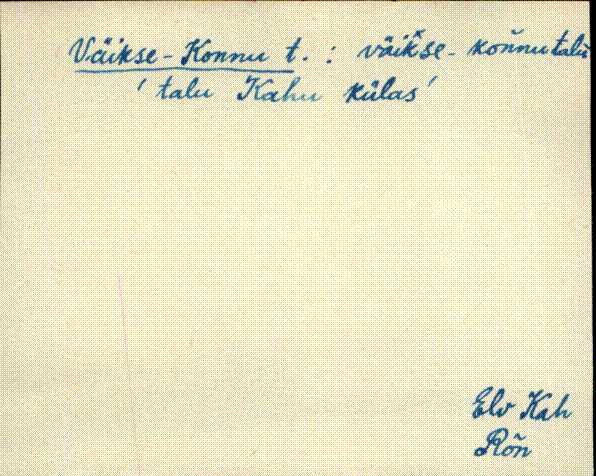 Väikse-Konnu t. : väikse-konnutalu
' talu Kahu külas '
Elv Kah
Rõn